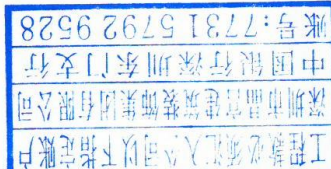 工程款必须汇入公司以下指定账户
深圳市晶宫建筑装饰集团有限公司
中国银行深圳东门支行
账号:7731 5792 9528